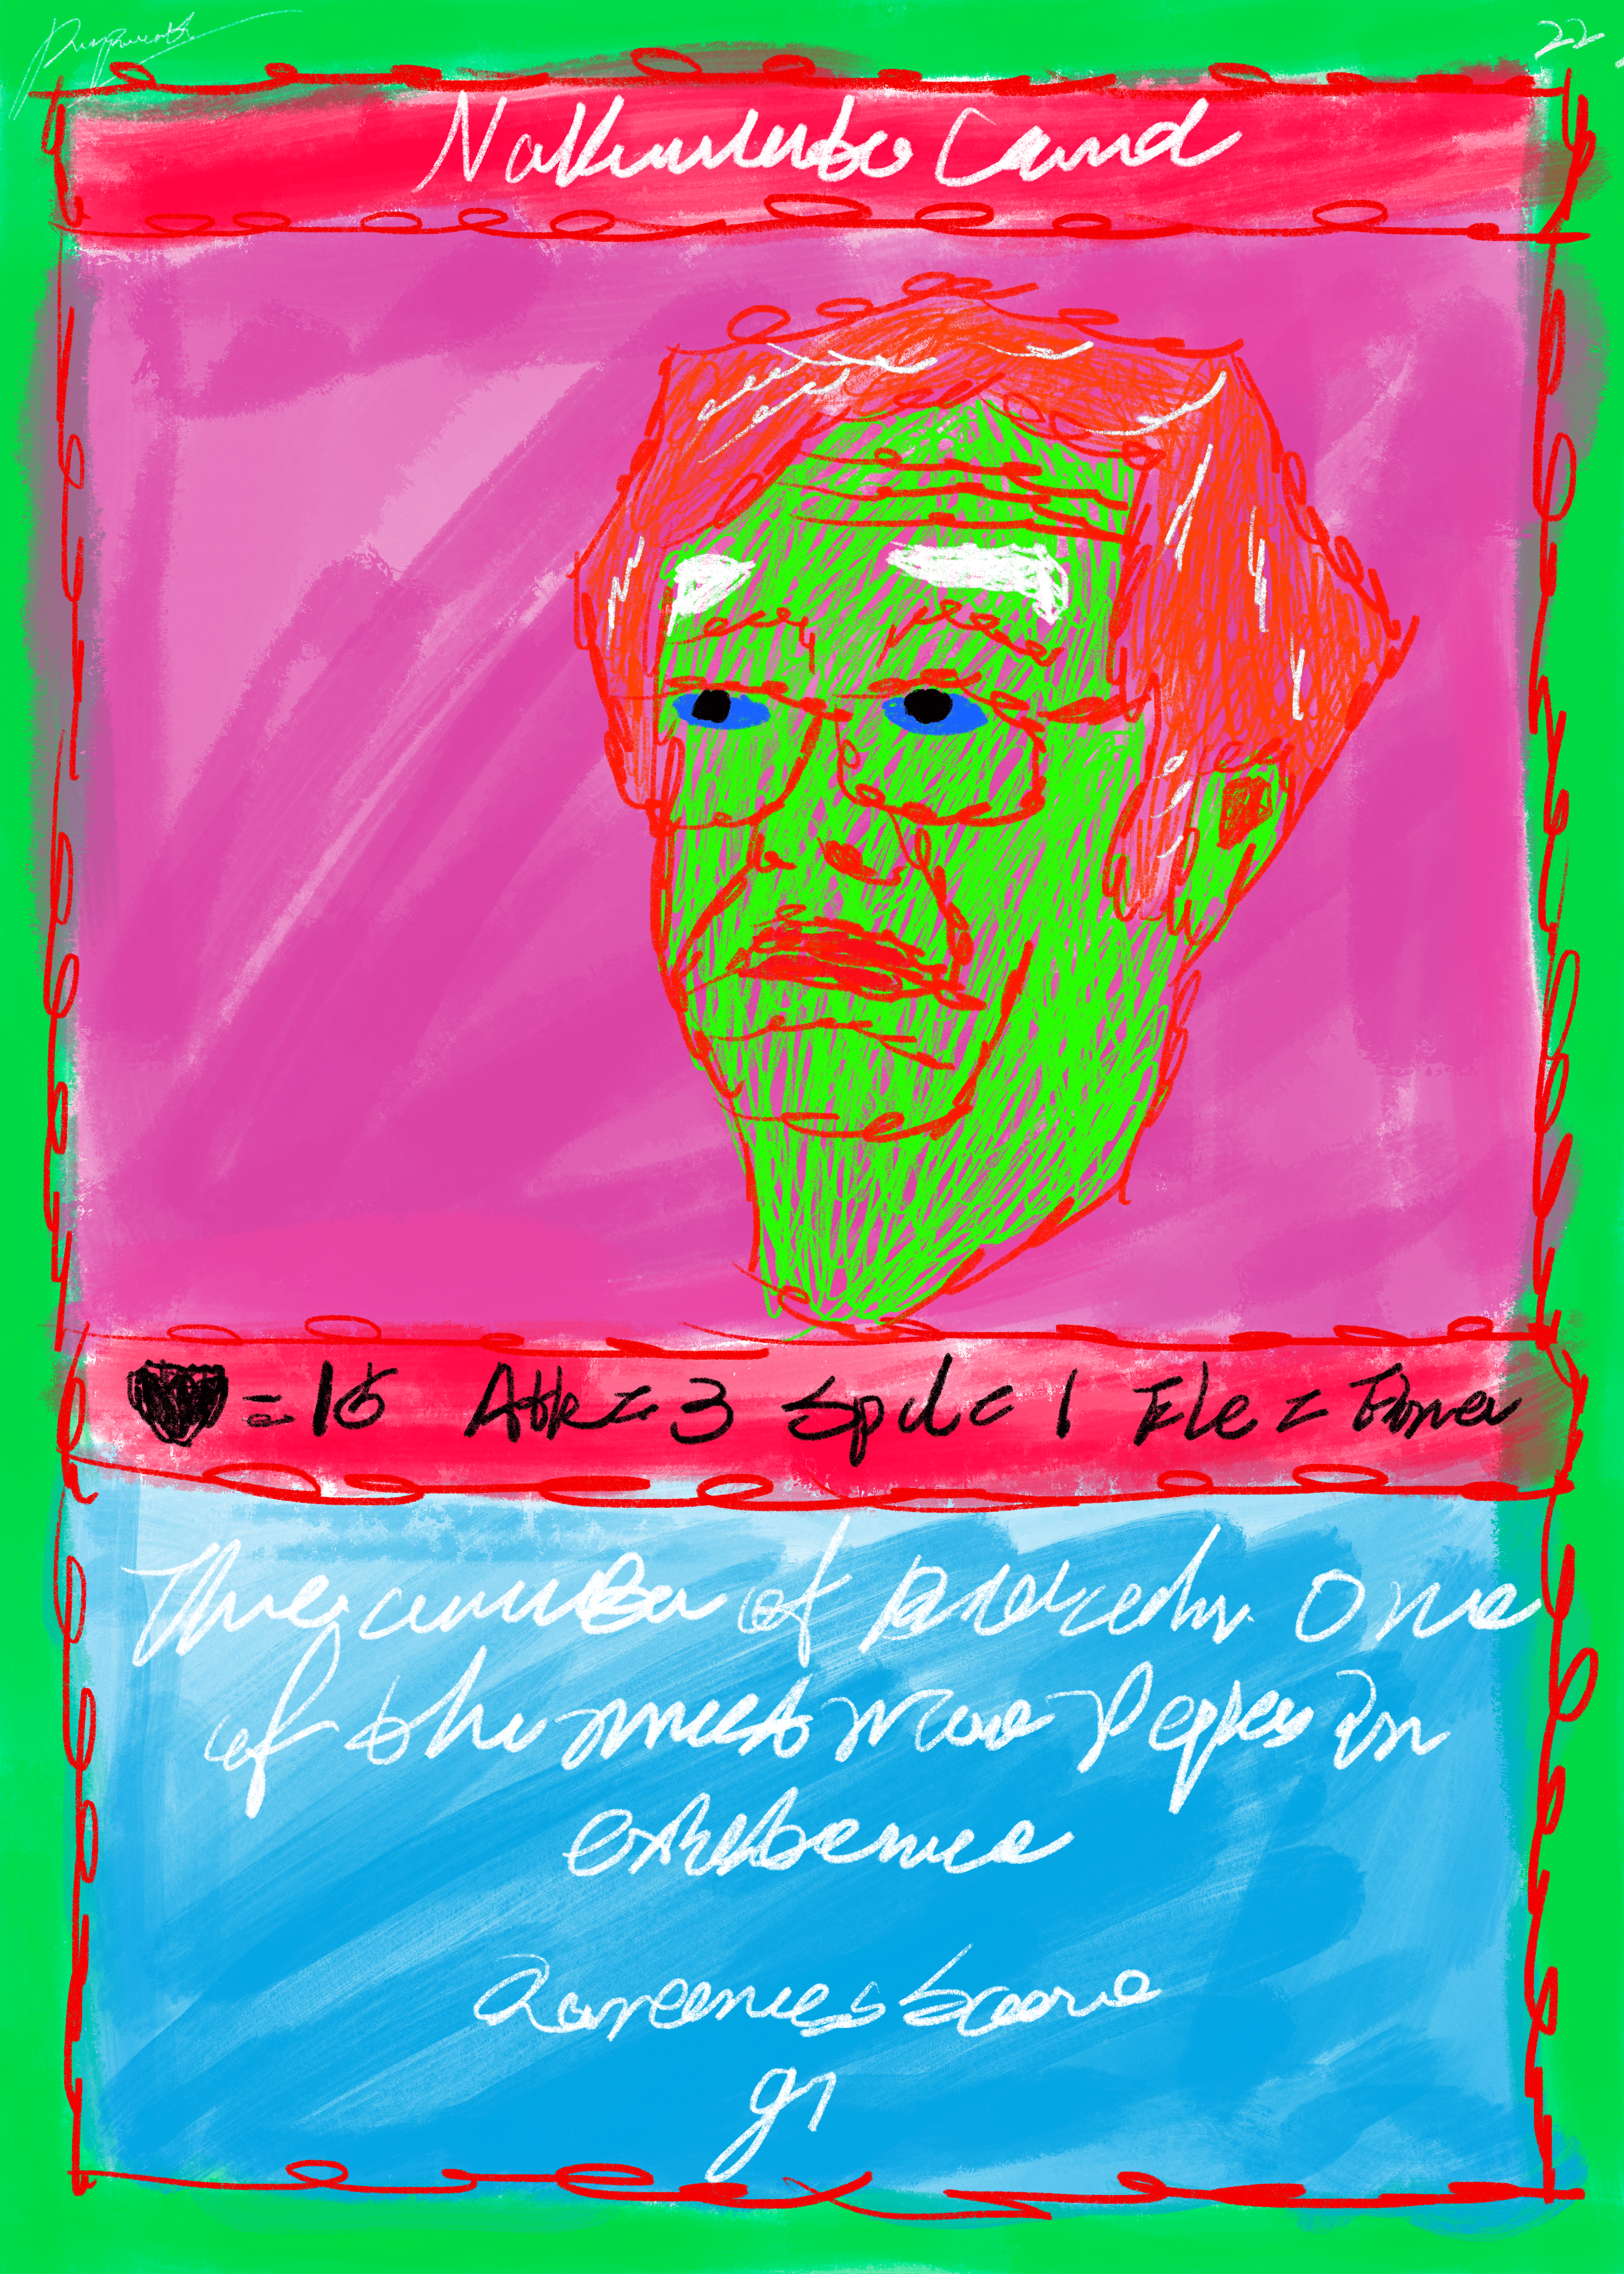 22
Nakumuto Card
= 15 Atk = 3 Spd = 1 Ele =
The creator of One
of the most rare Pepes in
existence
Rareness Score
91